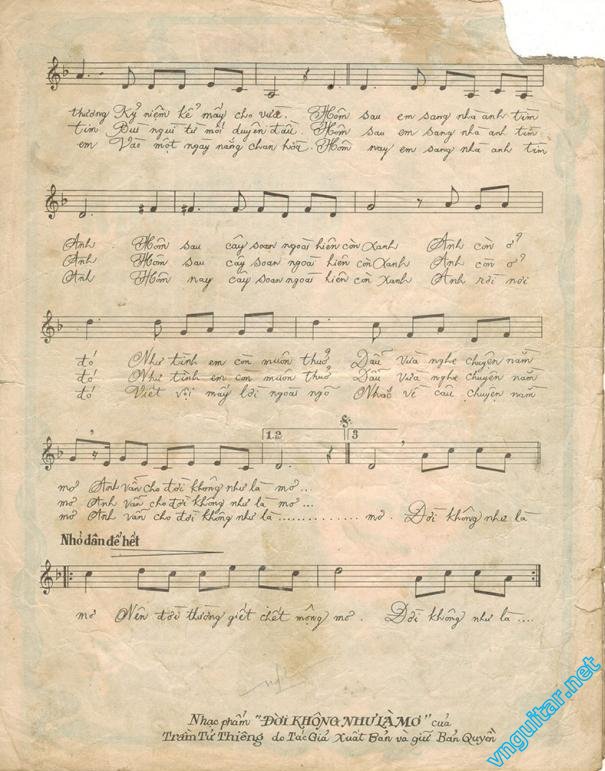 thương Kỷ niệm kể mấy cho vừa. Hôm sau em sang nhà anh tìm
tim Bùi ngùi từ mối duyên đầu. Hôm sau em sang nhà anh tìm
em Vào một ngày nắng chan hòa. Hôm nay em sang nhà anh tìm
Anh. Hôm sau cây soan ngoài hiên còn xanh Anh còn ở?
Anh Hôm sau cây soan ngoài hiên còn xanh Anh còn ở?
Anh Hôm nay cây soan ngoài hiên còn xanh Anh rời nơi
đó Như tình em còn muôn thuở Dẫu vừa nghe chuyện năm
đó Như tình em còn muôn thuở Dẫu vừa nghe chuyện năm
đó Viết vội mấy lời ngoài ngõ Nhắc về câu chuyện năm
1.2. 3
mơ Anh vẫn cho đời không như là mơ...
mơ Anh vẫn cho đời không như là mơ...
mơ Anh vẫn cho đời không như là ............ mơ. Đời không như là
Nhỏ dần để hết
mơ Nên đời thường giết chết mộng mơ. Đời không như là ....
Nhạc phẩm "ĐỜI KHÔNG NHƯ LÀ MƠ" của
Trầm Tử Thiêng do Tác Giả Xuất Bản và giữ Bản Quyền
vnguitar.net